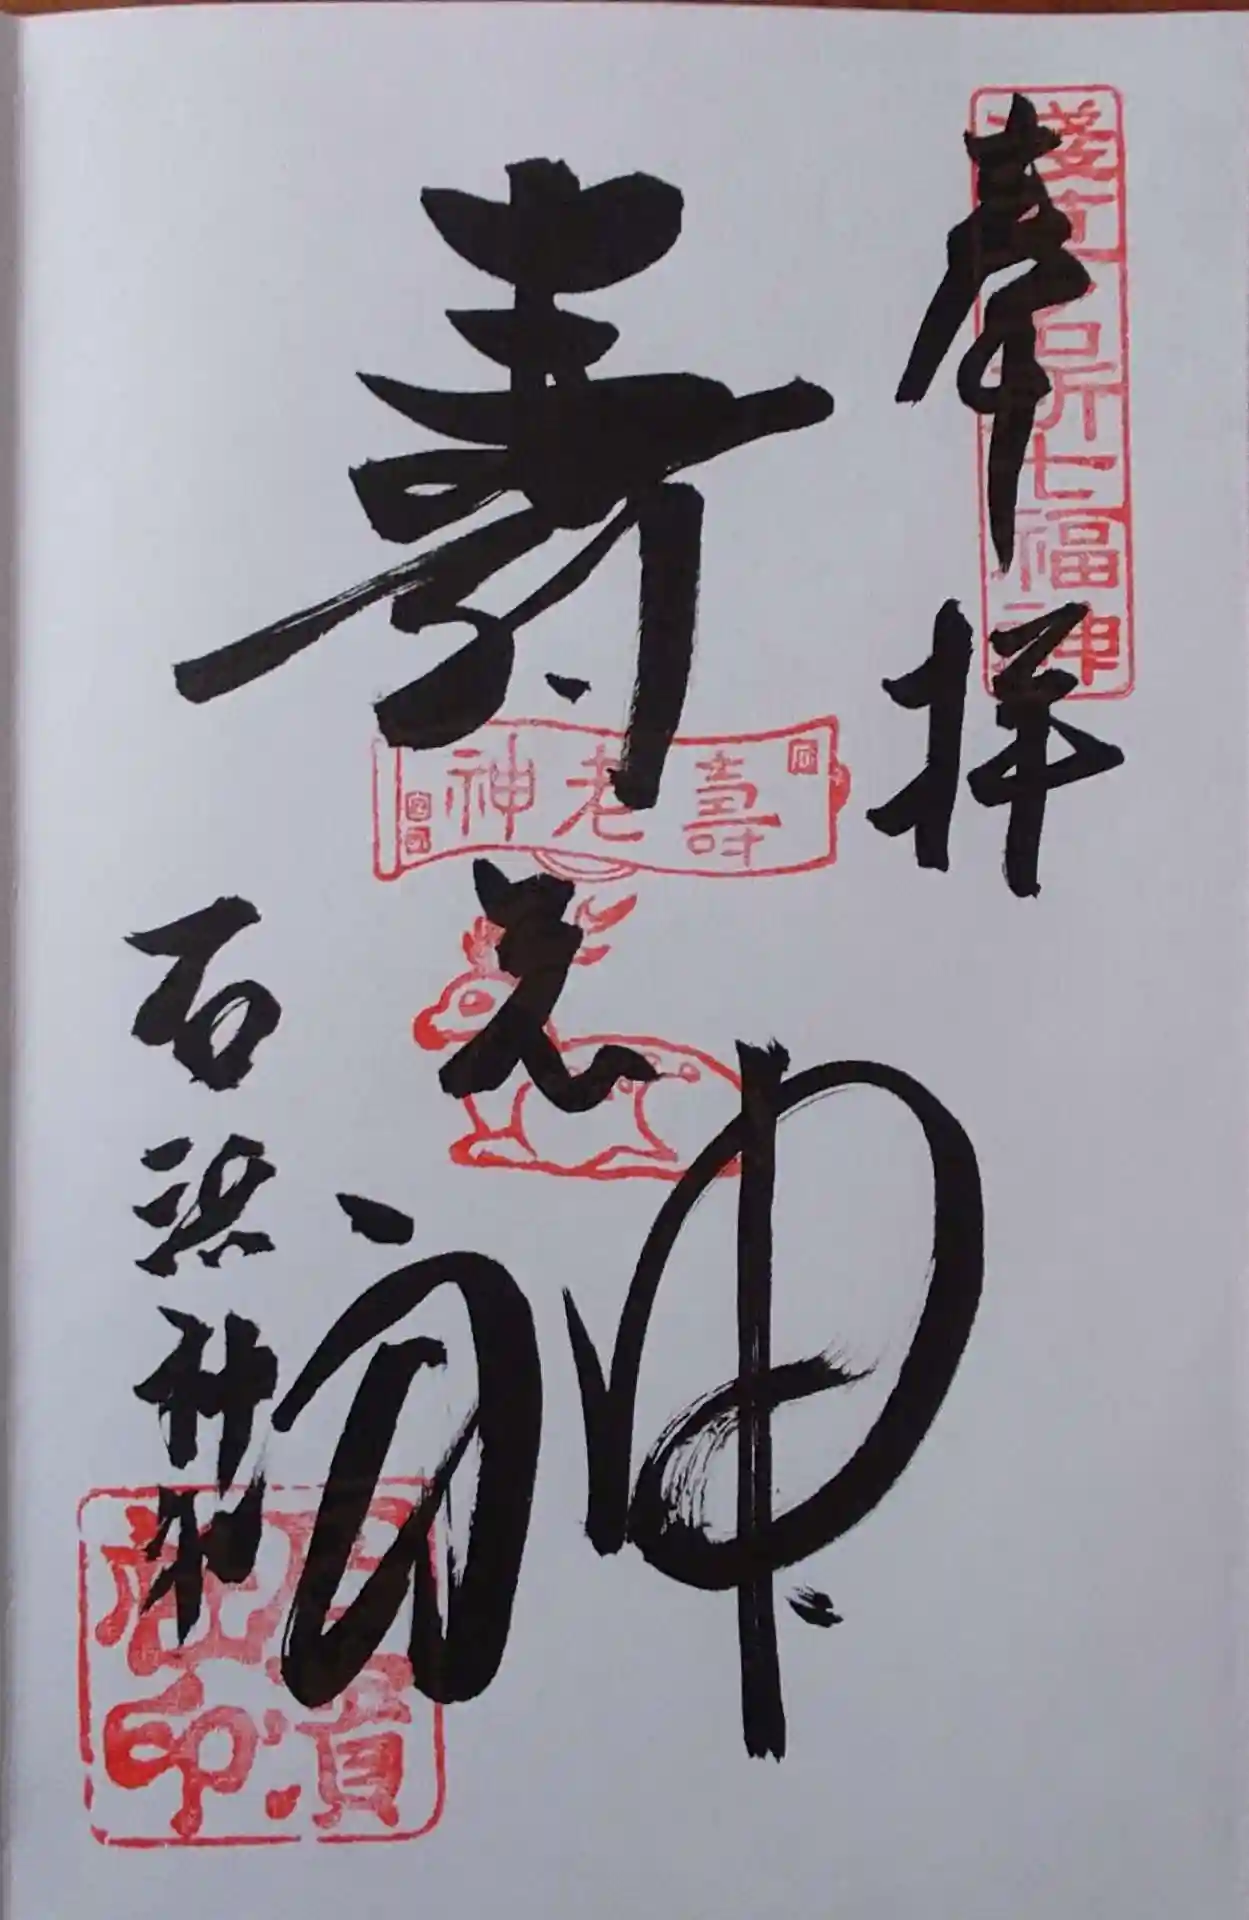 奉拝
浅草名所七福神
寿老神
壽老神
石浜神社
石濱
社印